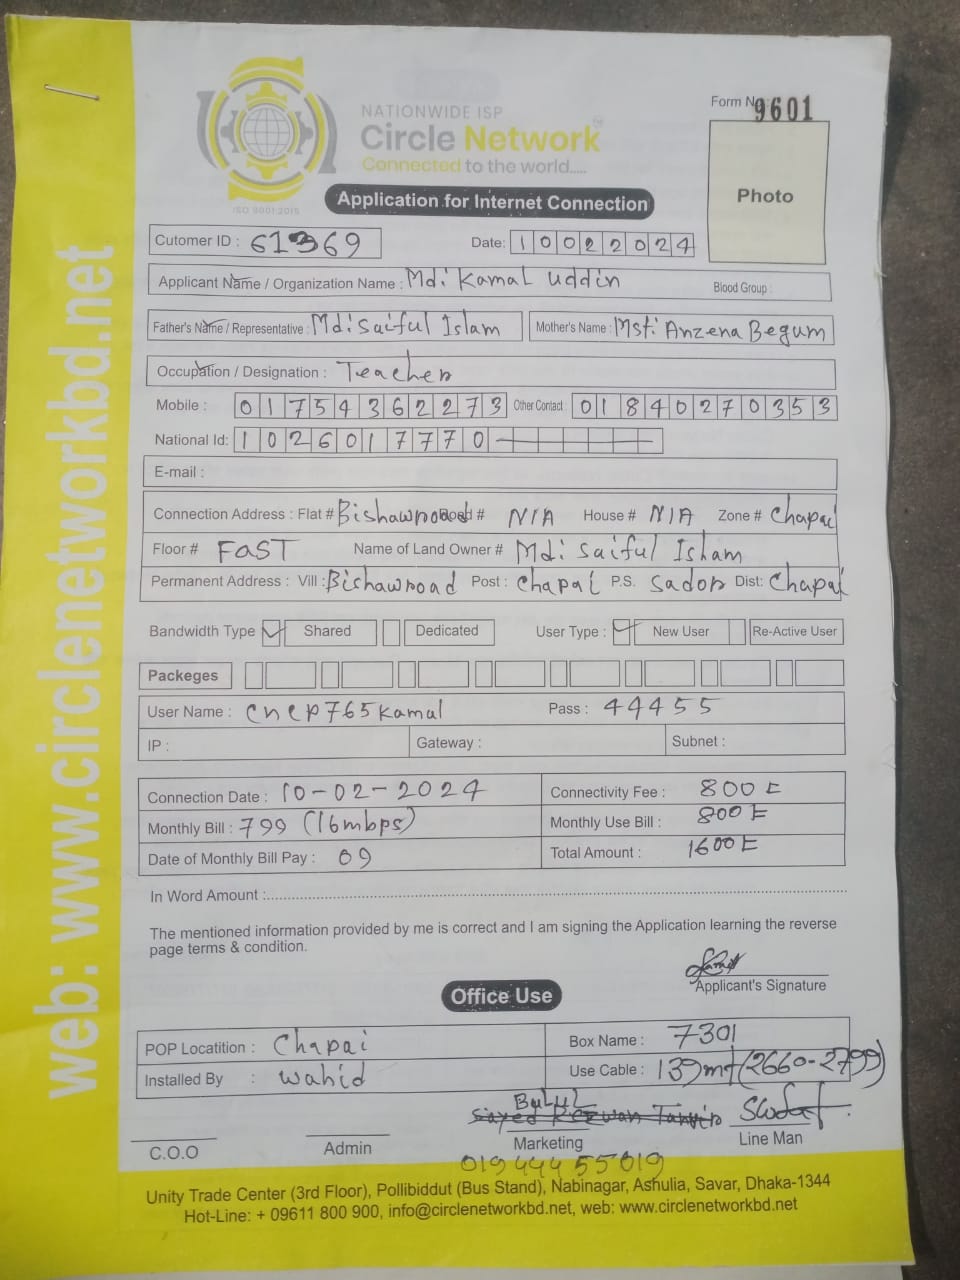 web: www.circlenetworkbd.net
NATIONWIDE ISP
Circle Network™
Connected to the world.....
ISO 9001:2015
Form No: 9601
Photo
Application for Internet Connection
Cutomer ID : 61369 Date: 10022024
Applicant Name / Organization Name : Md: Kamal Uddin Blood Group :
Father's Name / Representative : Md: Saiful Islam Mother's Name : Mst: Anzena Begum
Occupation / Designation : Teacher
Mobile : 01754362273 Other Contact : 01840270353
National Id: 1026017770
E-mail :
Connection Address : Flat # Bishawroad Road # N/A House # N/A Zone # Chapai
Floor # FAST Name of Land Owner # Md: Saiful Islam
Permanent Address : Vill : Bishawroad Post : Chapai P.S. Sador Dist: Chapai
Bandwidth Type Shared Dedicated User Type : New User Re-Active User
Packeges
User Name : cncp765kamal Pass : 44455
IP : Gateway : Subnet :
Connection Date : 10-02-2024 Connectivity Fee : 800 ৳
Monthly Bill : 799 (16mbps) Monthly Use Bill : 800 ৳
Date of Monthly Bill Pay : 09 Total Amount : 1600 ৳
In Word Amount :
The mentioned information provided by me is correct and I am signing the Application learning the reverse
page terms & condition.
Applicant's Signature
Office Use
POP Locatition : Chapai Box Name : 7301
Installed By : Wahid Use Cable : 139mt (2660-2799)
Bulul
Sayed Rezwan Tanvir
C.O.O Admin Marketing Line Man
01944455019
Unity Trade Center (3rd Floor), Pollibiddut (Bus Stand), Nabinagar, Ashulia, Savar, Dhaka-1344
Hot-Line: + 09611 800 900, info@circlenetworkbd.net, web: www.circlenetworkbd.net